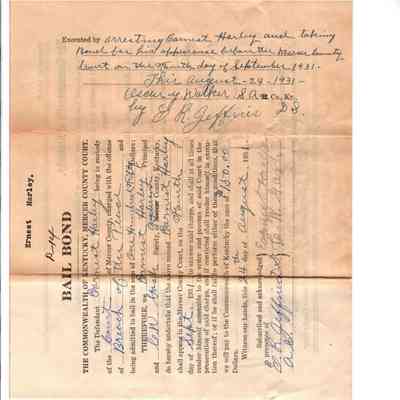 Executed by arresting Earnest Harley and taking
Bond for his appearance before the Mercer County
Court on the Fourth day of September 1931.
This August - 24 - 1931 -
Oscar Walker S.
by L R Jeffries D.S.
Ernest Harley.
BAIL BOND
THE COMMONWEALTH OF KENTUCKY, MERCER COUNTY COURT.
The Defendant Earnest Harley being in custody
of the Court of Mercer County, charged with the offense
of Breach of the Peace and
being admitted to bail in the sum of One Hundred Dollars:
THEREFORE, we Earnest Harley Principal
and C.W. Surety, Mercer County, Kentucky,
do hereby undertake that the above named Earnest Harley
shall appear in the Mercer County Court, on the Fourth
day of Sept. 1931 to answer said charge, and shall at all times
render himself amenable to the order and process of said Court in the
prosecution of said charge, and if convicted shall render himself in execu-
tion thereof; or if he shall fail to perform either of these conditions, that
we will pay to the Commonwealth of Kentucky the sum of $150.00
Dollars.
Witness our hands, the 24th day of August 1931
Subscribed and acknowledged
in presence of
L. R. Jeffries